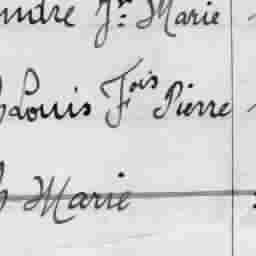 ndre Jn Marie
Louis Fois Pierre
Marie